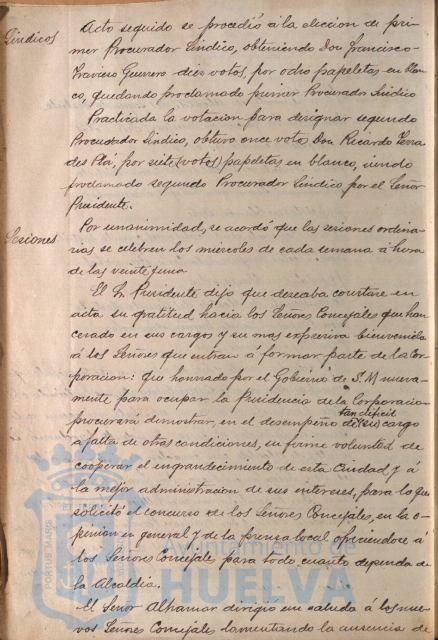 Síndicos
Acto seguido se procedió á la eleccion de pri-
mer Procurador Síndico, obteniendo Don Francisco
Traviero Guerrero diez votos, por ocho papeletas en blan
co, quedando proclamado primer Procurador Síndico
Practicada la votacion para designar segundo
Procurador Síndico, obtuvo once votos Don Ricardo Terra
des Plá, por siete (votos) papeletas en blanco, siendo
proclamado segundo Procurador Síndico por el Señor
Presidente.
Sesiones
Por unanimidad, se acordó que las sesiones ordina-
rias se celebren los miercoles de cada semana á hora
de las veinte y una
El Sr. Presidente dijo que deseaba constase en
acta su gratitud hacia los Señores Concejales que han
cesado en sus cargos y su mas expresiva bienvenida
á los Señores que entran á formar parte de la Cor
poracion: que honrado por el Gobierno de S. M nueva-
mente para ocupar la Presidencia de la Corporacion
procurará demostrar, en el desempeño de tan dificil cargo
á falta de otras condiciones, su firme voluntad de
cooperar al engrandecimiento de esta Ciudad y á
la mejor administracion de sus intereses, para lo que
solicitó el concurso de los Señores Concejales, en la o-
pinion en general y de la prensa local ofreciendose á
los Señores Concejales para todo cuanto dependa de
la Alcaldía.
El Señor Alhamar dirigió un saludo á los nue-
vos Señores Concejales lamentando la ausencia de
Ayuntamiento de
HUELVA
PORTUS MARIS